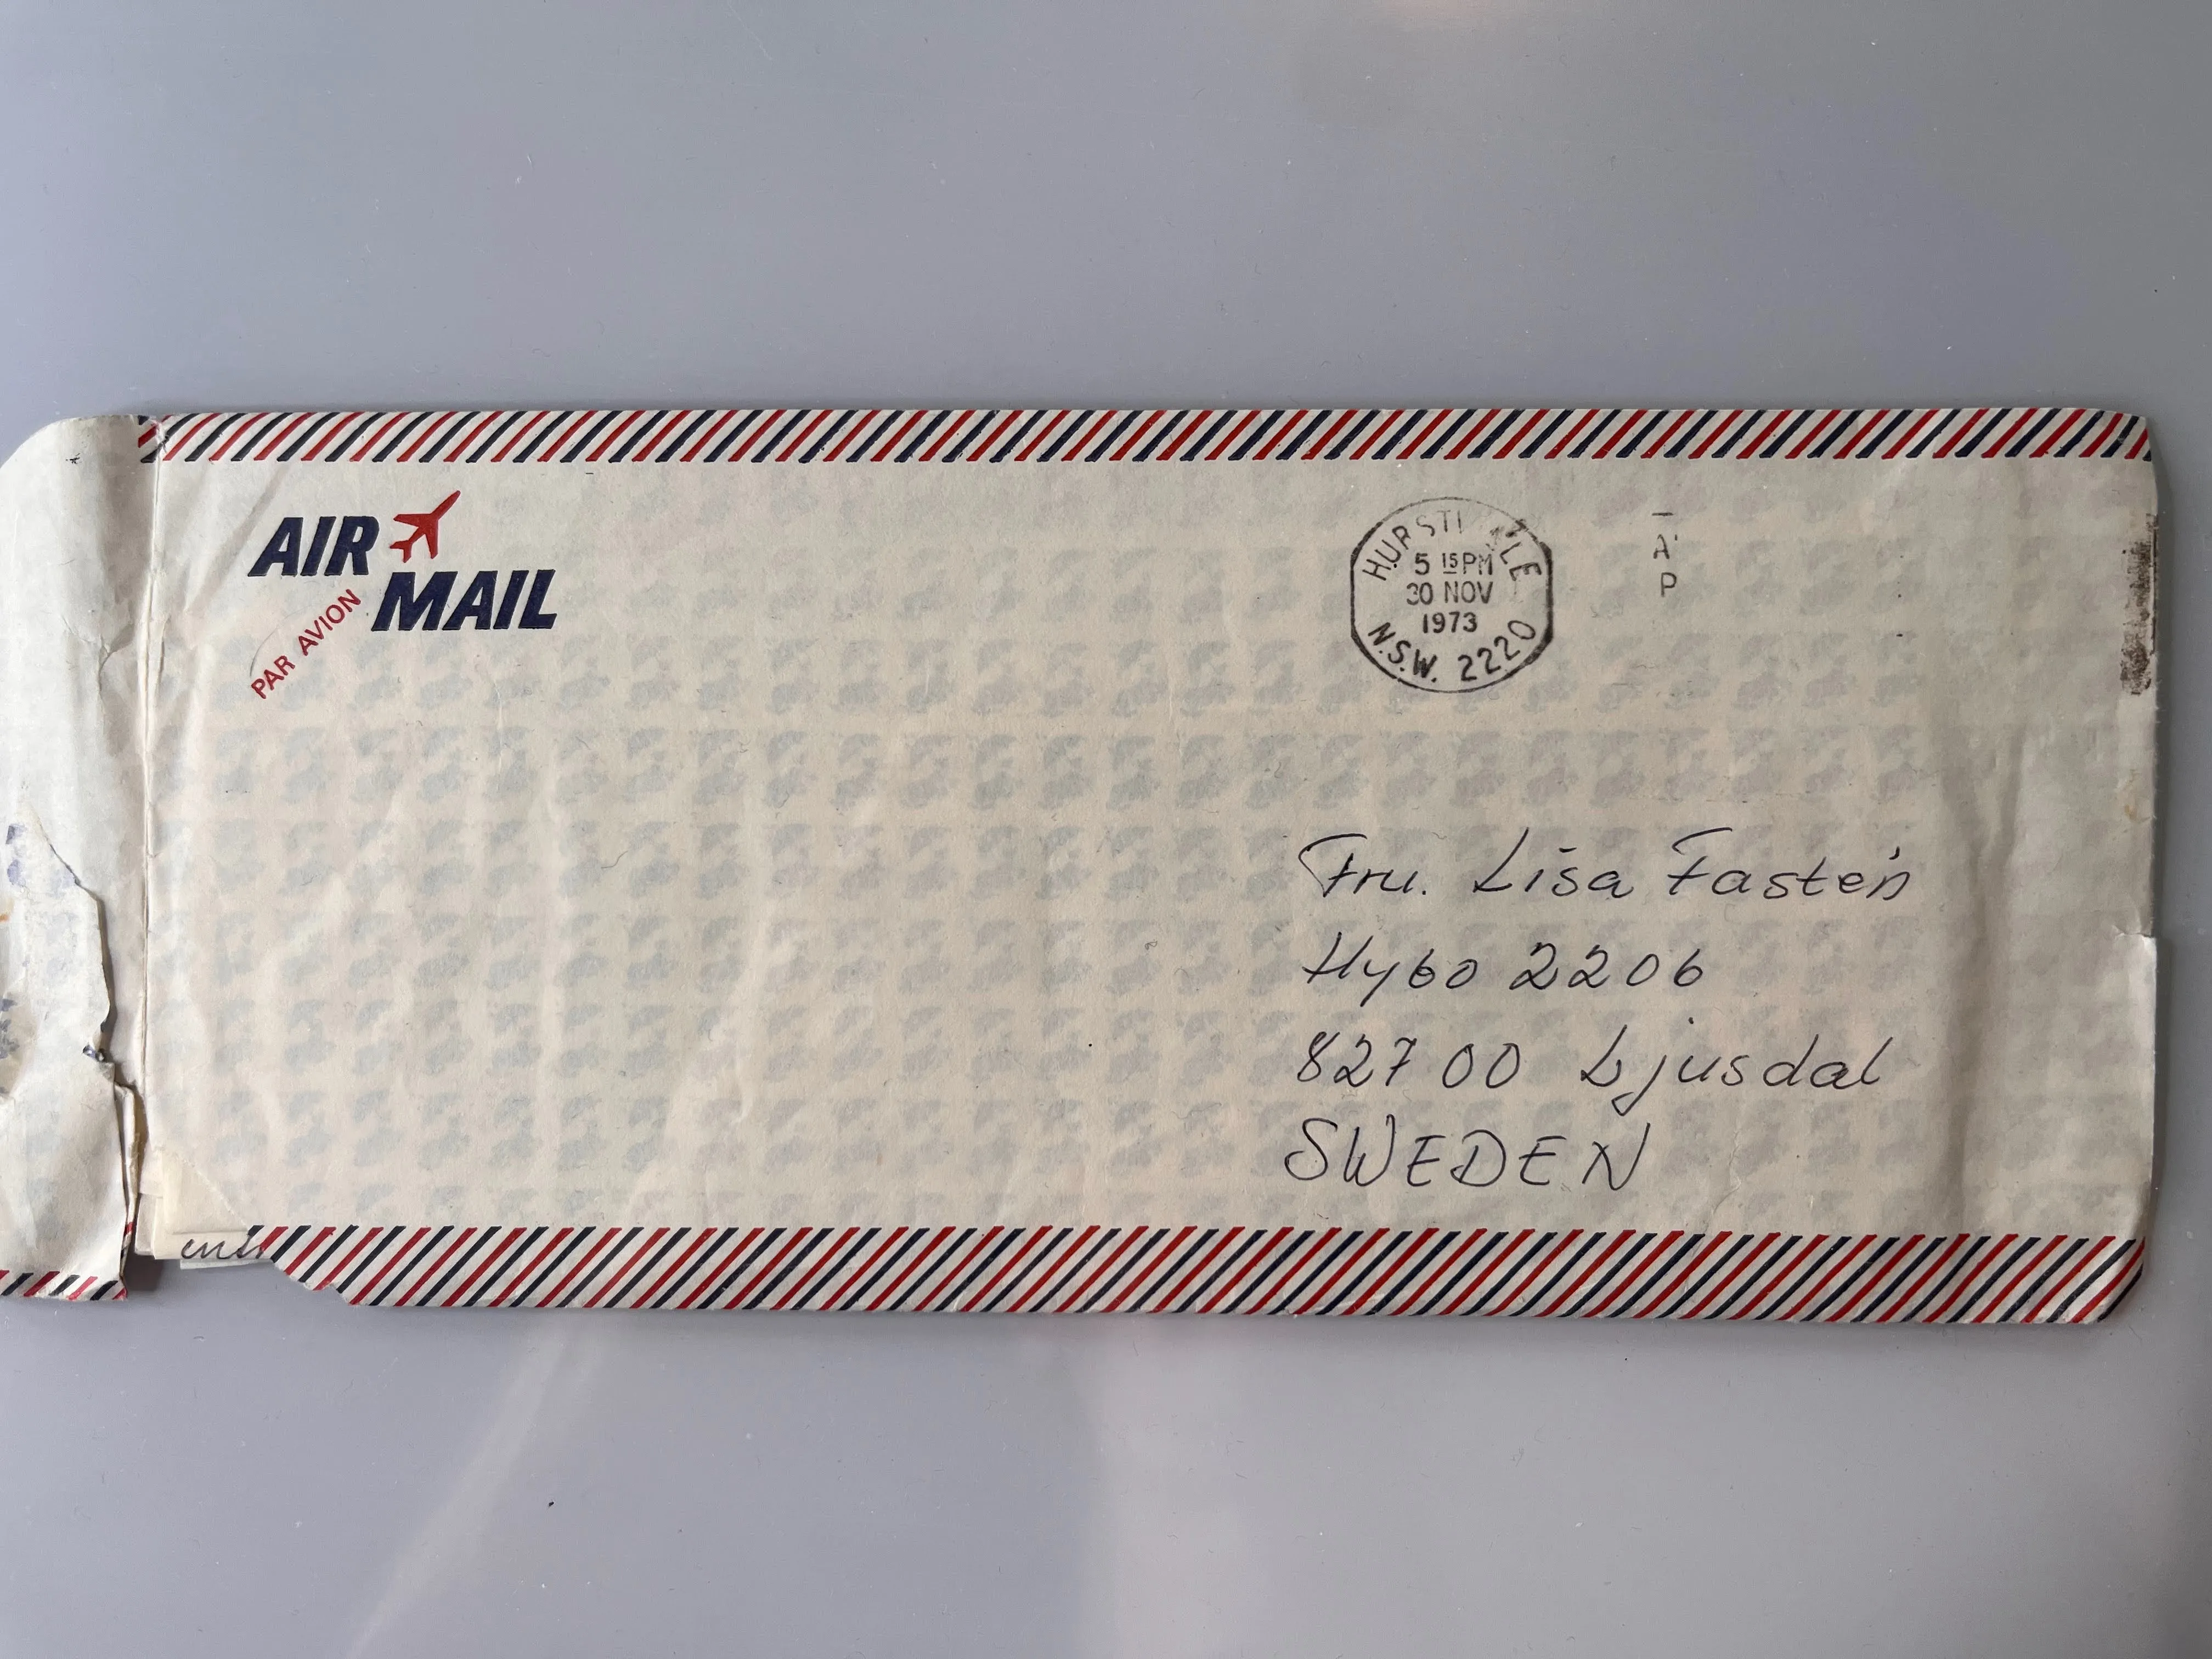 AIR
MAIL
PAR AVION
5 15 PM
30 NOV
1973
N.S.W. 2220
A
P
Fru. Lisa Fastén
Hybo 2206
827 00 Ljusdal
SWEDEN